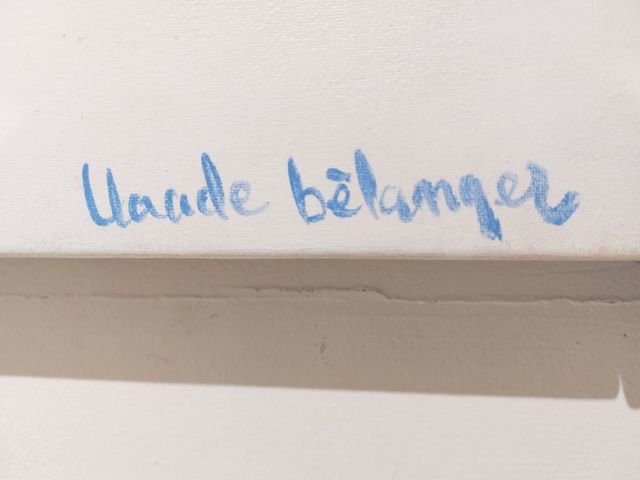 Claude bélanger